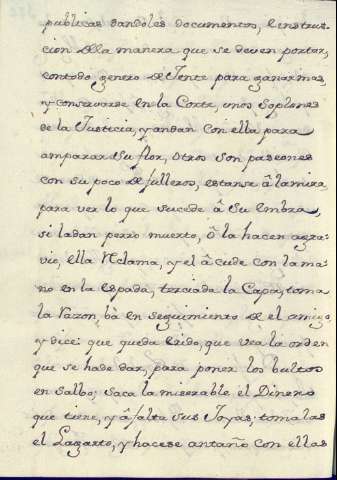 publicas dandoles documentos, è instruc-
cion dela manera que se deven portar,
contodo genero de Jente para ganar mas,
y conservarse en la Corte, unos soplones
de la Justicia, y andan con ella para
amparar su flor, otros son paseones
con su poco de fulleros, estanse â la mira
para ver lo que sucede â su embra,
si la dan perro muerto, ô la hacen agra-
vio, ella reclama, y el âcude con la ma-
no en la espada, terciada la Capa, toma
la razon, bà en seguimiento de el amigo,
y dice: que queda erido, que vea la orden
que se hade dar, para poner los bultos
en salbo; saca la miserable el Dinero
que tiene, y â falta sus Joyas, tomalas
el Lagarto, y hacese antaño con ellas